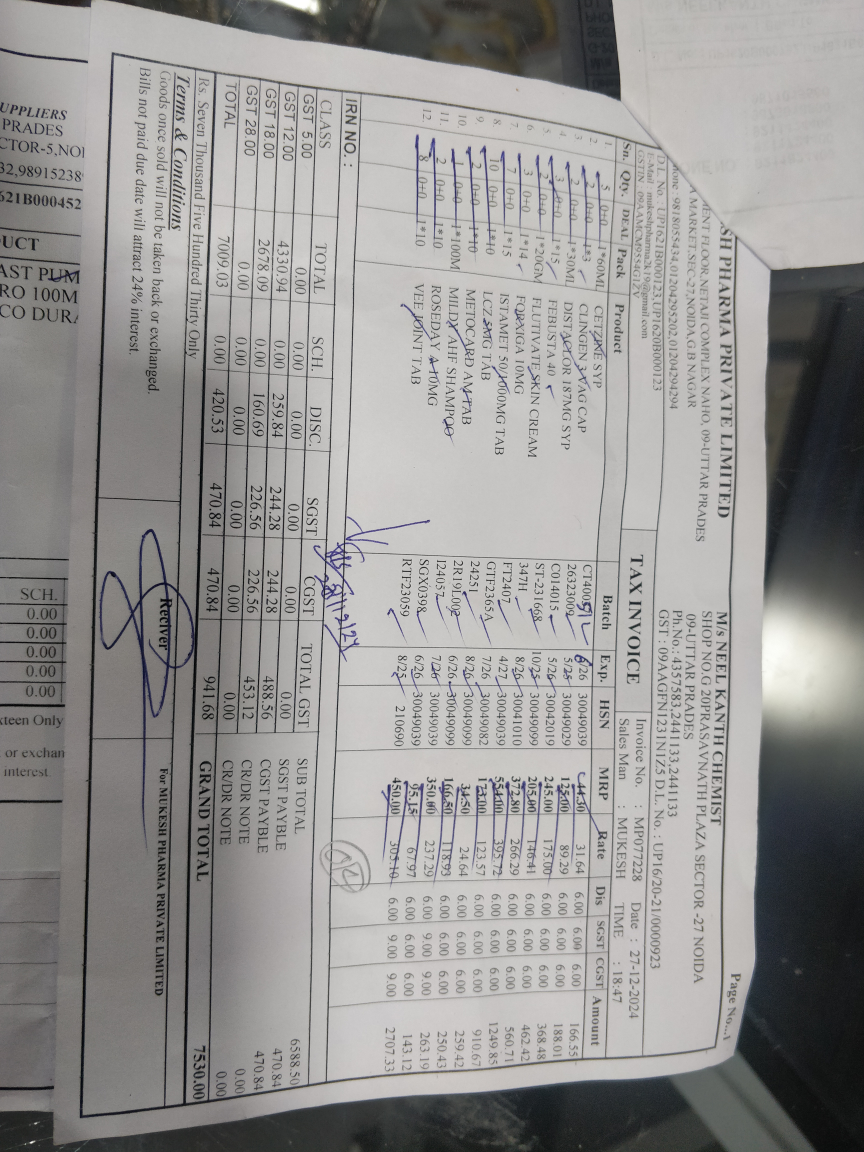 SH PHARMA PRIVATE LIMITED
MENT FLOOR,NETAJI COMPLEX NAHO, 09-UTTAR PRADES
MARKET,SEC-27,NOIDA,G.B NAGAR
Phone : 9818055434,01204295202,01204294294
D.L. No. : UP1621B000123,UP1620B000123
E-Mail : mukeshpharma2k19@gmail.com
GSTIN : 09AAMCM9554G1ZV
TAX INVOICE
Page No...1
M/s NEEL KANTH CHEMIST
SHOP NO.G 20PRASAVNATH PLAZA SECTOR -27 NOIDA
09-UTTAR PRADES
Ph.No.: 4357583,2441133,2441133
GST : 09AAGFN1231N1Z5 D.L. No. : UP16/20-21/0000923
Invoice No. : MP077228 Date : 27-12-2024
Sales Man : MUKESH TIME : 18:47
Sn. Qty. DEAL Pack Product Batch Exp. HSN MRP Rate Dis SGST CGST Amount
1. 5 0+0 1*60ML CETZINE SYP 6/26 30049039 44.30 31.64 6.00 6.00 6.00 166.55
2. 2 0+0 1*3 CLINGEN 3 VAG CAP 26323009 5/25 30049029 125.00 89.29 6.00 6.00 6.00 188.01
3. 2 0+0 1*30ML DISTACLOR 187MG SYP C014015 5/26 30042019 245.00 175.00 6.00 6.00 6.00 368.48
4. 3 0+0 1*15 FEBUSTA 40 ST-231668 10/25 30049099 205.00 146.41 6.00 6.00 6.00 462.42
5. 2 0+0 1*20GM FLUTIVATE SKIN CREAM 347H 8/26 30041010 372.80 266.29 6.00 6.00 6.00 560.71
6. 3 0+0 1*14 FORXIGA 10MG FT2407 4/27 30049039 554.00 395.72 6.00 6.00 6.00 1249.85
7. 7 0+0 1*15 ISTAMET 50/1000MG TAB GTF2365A 7/26 30049082 173.00 123.57 6.00 6.00 6.00 910.67
8. 10 0+0 1*10 LCZ 5MG TAB 24251 8/26 30049099 34.50 24.64 6.00 6.00 6.00 259.42
9. 2 0+0 1*10 METOCARD AM TAB 2R19L002 6/26 30049099 166.50 118.93 6.00 6.00 6.00 250.43
10. 1 0+0 1*100M MILDY AHF SHAMPOO I24057 7/26 30049039 350.00 237.29 6.00 9.00 9.00 263.19
11. 2 0+0 1*10 ROSEDAY A 10MG SGX0398 6/26 30049039 95.15 67.97 6.00 6.00 6.00 143.12
12. 8 0+0 1*10 VEE JOINT TAB RTF23059 8/25 210690 450.00 305.10 6.00 9.00 9.00 2707.33
IRN NO. :
CLASS TOTAL SCH. DISC. SGST CGST TOTAL GST
GST 5.00 0.00 0.00 0.00 0.00 0.00 0.00
GST 12.00 4330.94 0.00 259.84 244.28 244.28 488.56
GST 18.00 2678.09 0.00 160.69 226.56 226.56 453.12
GST 28.00 0.00 0.00 0.00 0.00 0.00 0.00
TOTAL 7009.03 0.00 420.53 470.84 470.84 941.68
SUB TOTAL 6588.50
SGST PAYBLE 470.84
CGST PAYBLE 470.84
CR/DR NOTE 0.00
CR/DR NOTE 0.00
Rs. Seven Thousand Five Hundred Thirty Only
GRAND TOTAL 7530.00
Terms & Conditions
Goods once sold will not be taken back or exchanged.
Bills not paid due date will attract 24% interest.
Reciver
For MUKESH PHARMA PRIVATE LIMITED
UPPLIERS
PRADES
CTOR-5,NOI
32,989152389
621B000452
UCT
AST PUM
RO 100M
CO DURA
SCH.
0.00
0.00
0.00
0.00
0.00
xteen Only
or exchan
interest